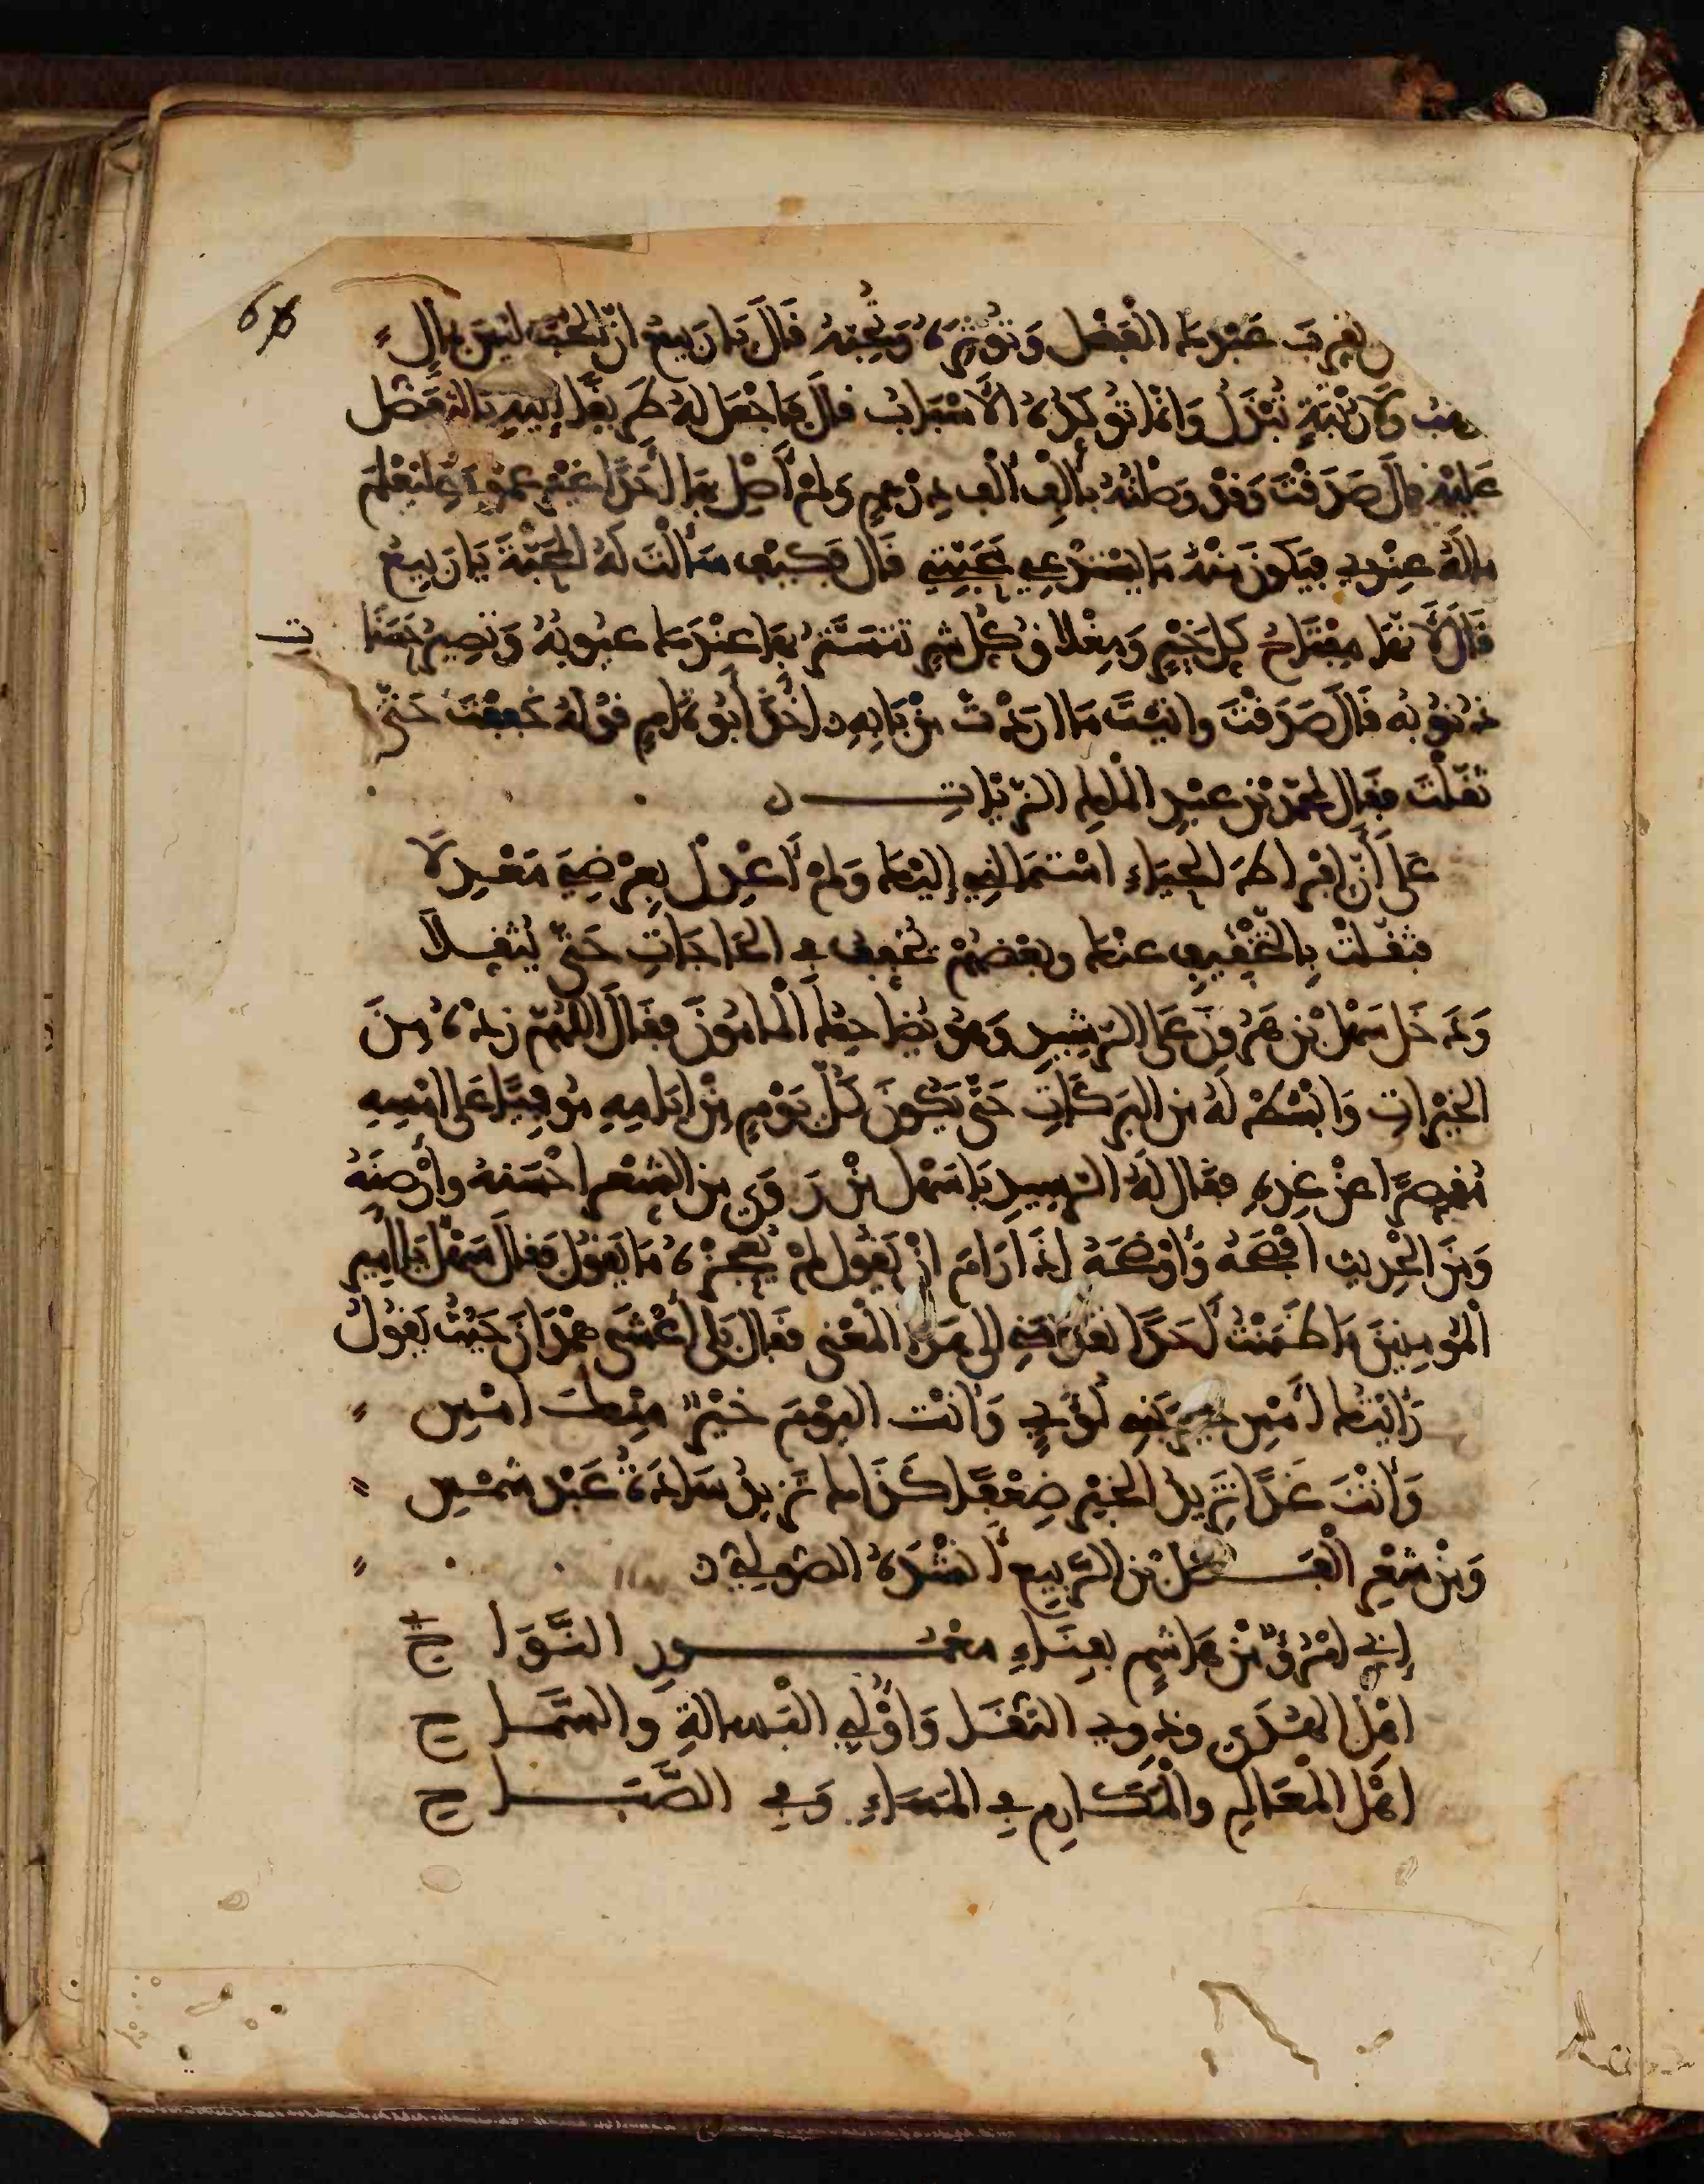 تقرب عبدك الفضل وتوثره وتحبه قال يا ربيع ان المحبة ليس بمال
يوهب ولا رتبة تبذل وانما توكدها الاسباب قال فاجعل له طريقا اليه بالتفضل
عليه قال صدقت وقد وصلته بألف ألف درهم ولم أصل بها أحدا غير عمومتي ليعلم
ماله عندي فيكون منه ما يستدعي محبتي قال فكيف سألت له المحبة يا ربيع
قال لأنها مفتاح كل خير ومغلاق كل شر تستتر بها عندك عيوبه وتصير حسنا
ذنوبه قال صدقت وأتيت ما اردت من بابه ٥ اخذ أبو تمام قوله خففت حتى
ثقلت فقال لمحمد بن عبد الملك الزيات ٥
على أن افراط الحياء استمالني إليك ولم أعدل بعرضي معدلا
فثقلت بالتخفيف عنك وبعضهم يخفف في الحاجات حتى يثقلا
ودخل سهل بن هرون على الرشيد وهو يضاحك المأمون فقال اللهم زده من
الخيرات وابسط له من البركات حتى يكون كل يوم من ايامه موفيا على امسه
مقصرا عن غده فقال له الرشيد يا سهل من روى من الشعر احسنه وأرصنه
ومن الحديث افصحه وأوضحه اذا رام ان يقول لم يعجزه ما يقول فقال سهل يا امير
المومنين ما ظننت أحدا تقدمني الى هذا المعنى فقال بلى أعشى همدان حيث يقول
رأيتك أمس خير بني لؤي وأنت اليوم خير منك امس
وأنت غدا تزيد الخير ضعفا كذاك تزيد سادة عبد شمس
ومن شعر الفضل بن الربيع أنشده الصولي ٥
إني امرؤ من هاشم بفناء معمور النواح
اهل الهدى وذوي التقى وأولي البسالة والسماح
اهل المعالم والمكارم في المساء وفي الصباح